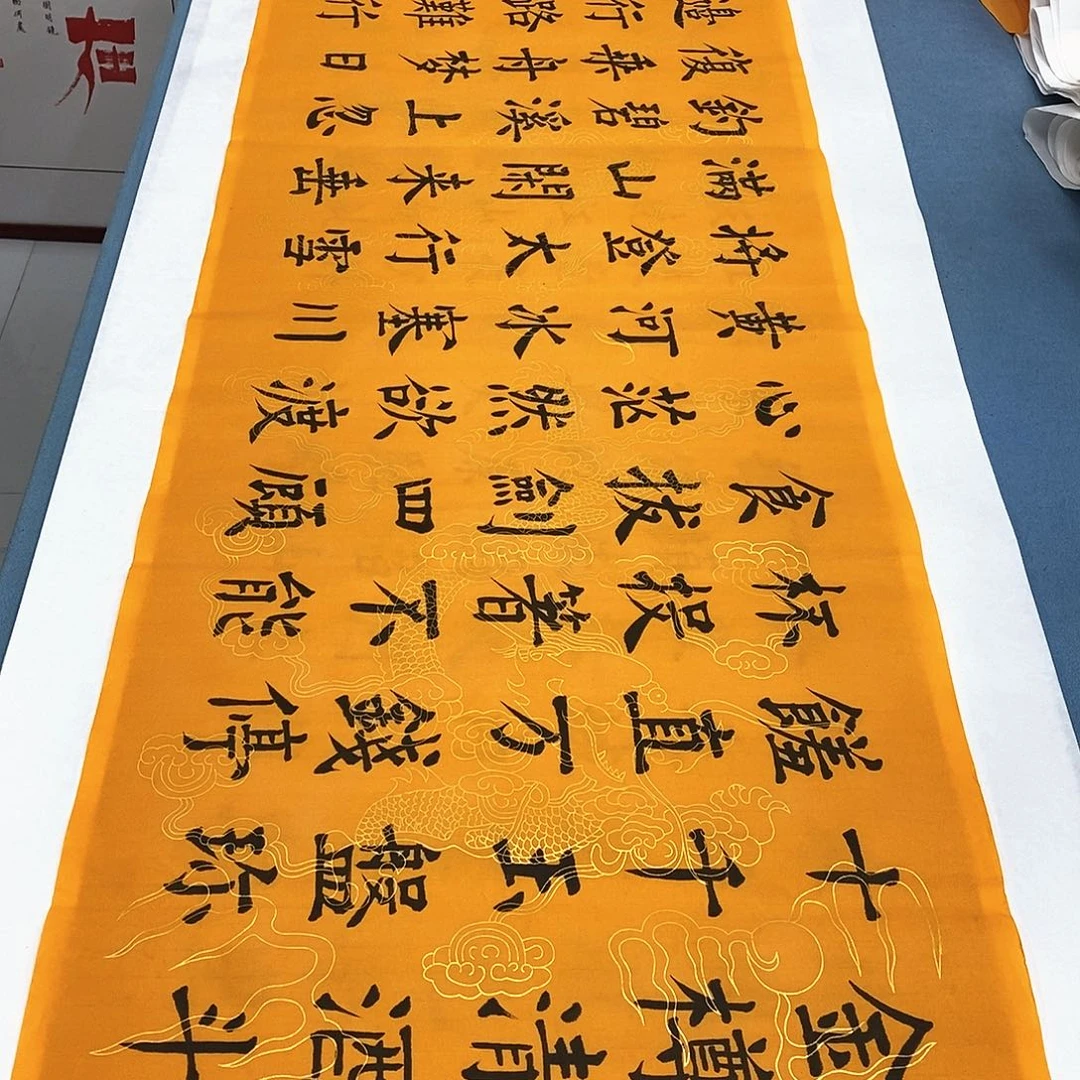 金樽清酒斗
十千玉盤珍
饈直万錢停
杯投箸不能
食拔劍四顧
心茫然欲渡
黄河冰塞川
将登太行雪
滿山閑来垂
釣碧溪上忽
復乘舟梦日
邊行路難行